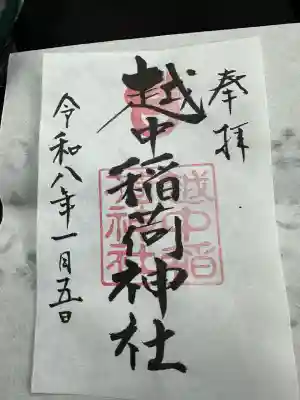 奉拝
越中稲荷神社
令和八年一月五日
越中稲荷神社